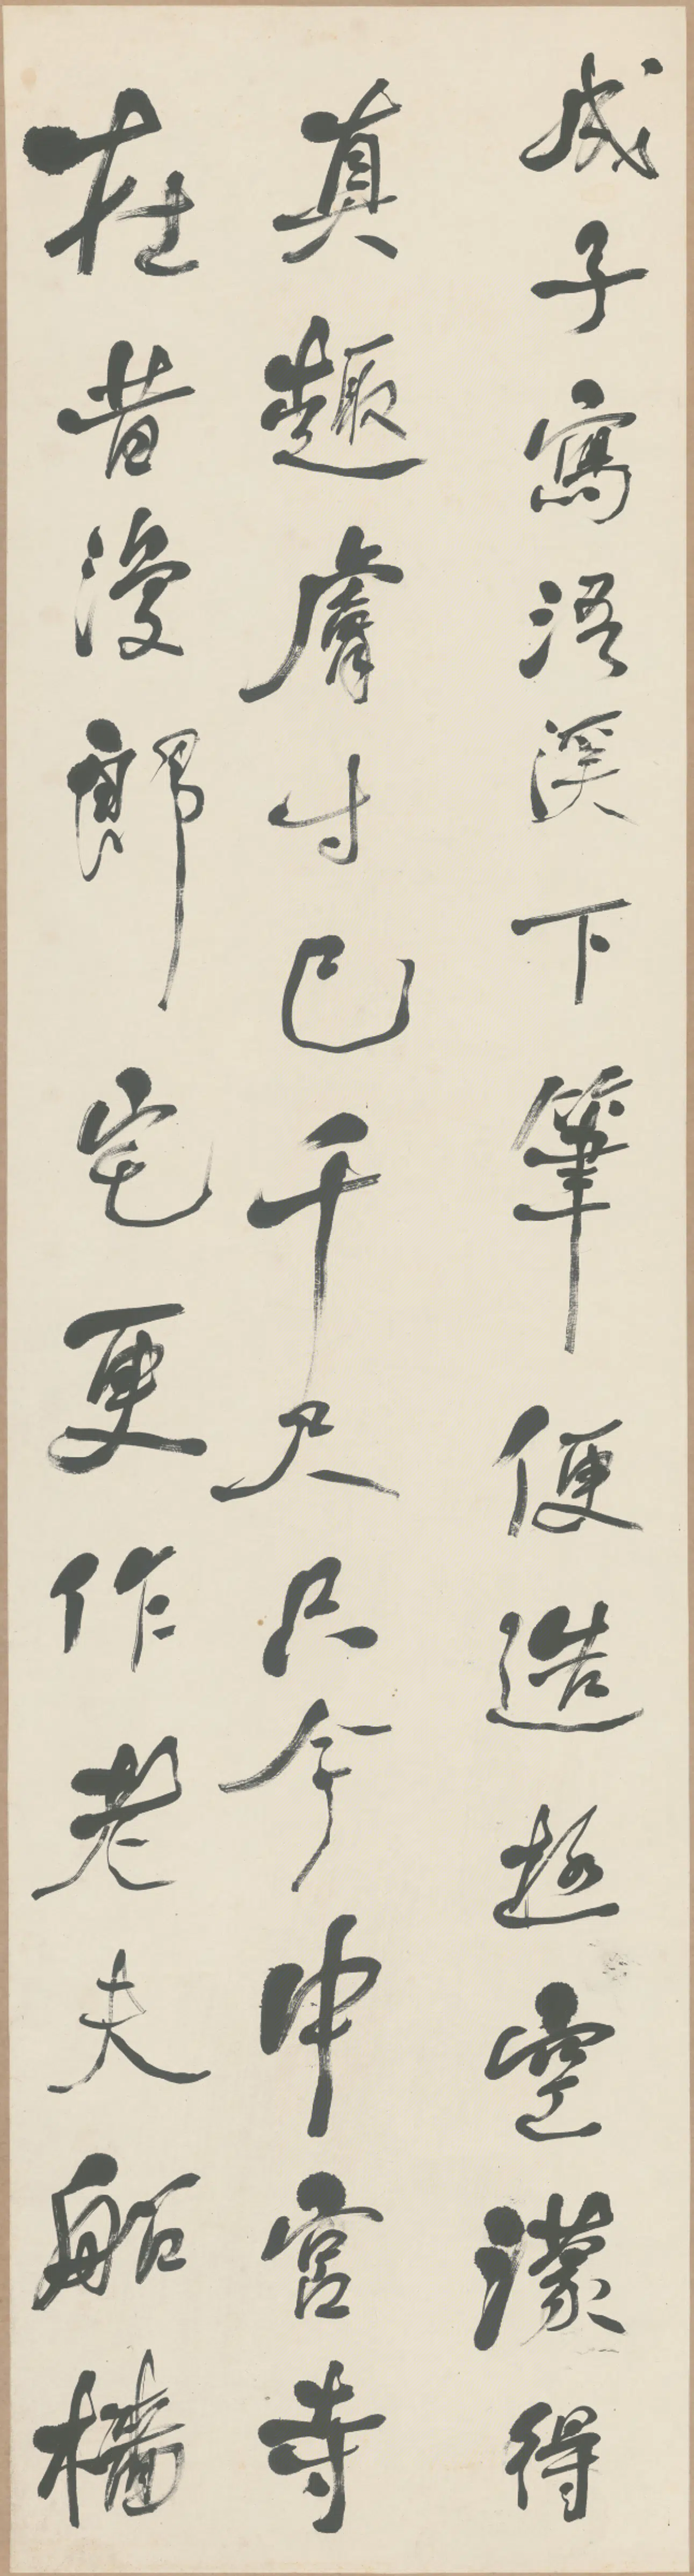 成子寫浯溪下筆便造極空濛得
真趣膚寸已千尺只今中宮寺
在昔漫郎宅更作老夫船檣